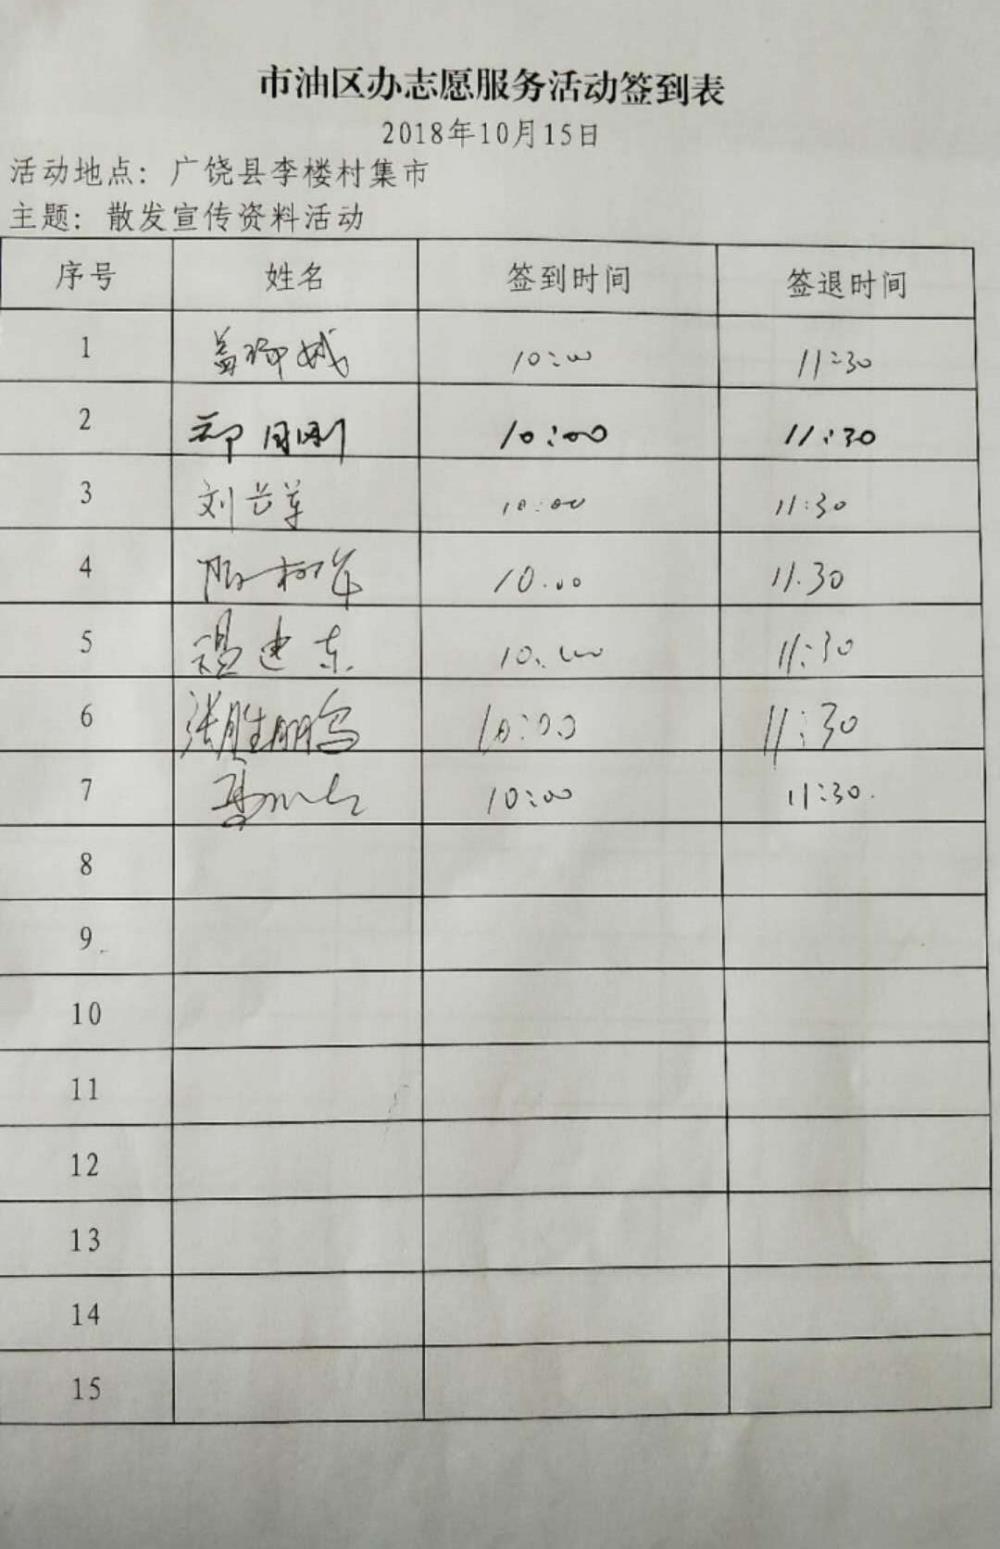 市油区办志愿服务活动签到表
2018年10月15日
活动地点：广饶县李楼村集市
主题：散发宣传资料活动
序号 姓名 签到时间 签退时间
1 10:00 11:30
2 10:00 11:30
3 刘 10:00 11:30
4 10:00 11:30
5 温建东 10:00 11:30
6 张胜鹏 10:00 11:30
7 10:00 11:30
8
9
10
11
12
13
14
15